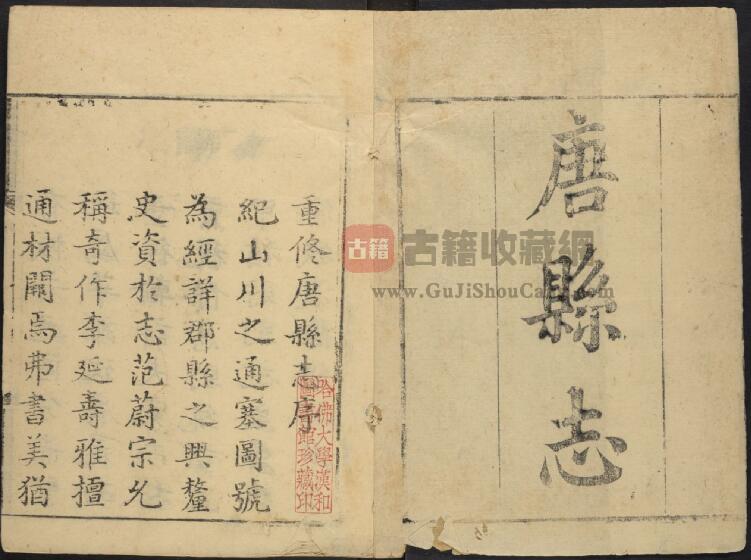 唐縣志
重修唐縣志序
紀山川之通塞圖號
為經詳郡縣之興釐
史資於志范蔚宗允
稱奇作李延壽雅擅
通材闕焉弗書美猶
哈佛大學漢和
圖書館珍藏印
古籍
古籍收藏網
www.GuJiShouCang.com